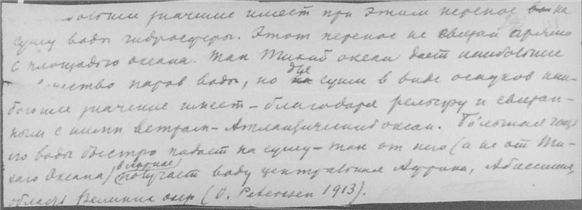 большее значение имеет при этом перенос на
сушу воды гидросферы. Этот перенос не связан прямо
с площадью океана. Так Тихий океан дает наибольшее
количество паров воды, но для суши в виде осадков наи-
большее значение имеет – благодаря рельефу и связан-
ным с ними ветрам – Атлантический океан. Большая часть
его воды быстро падает на сушу – так от него (а не от Ти-
хого океана) главное получает воду центральная Африка, Абиссиния,
область Великих озер (O. Petersen 1913).